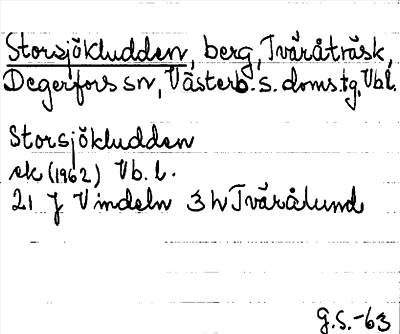 Storsjökludden, berg, Tväråträsk,
Degerfors sn, Västerb. s. doms. tg, Vbl.
Storsjökludden
ek (1962) Vb. l.
21 J Vindeln 3 h Tvärålund
G.S.-63